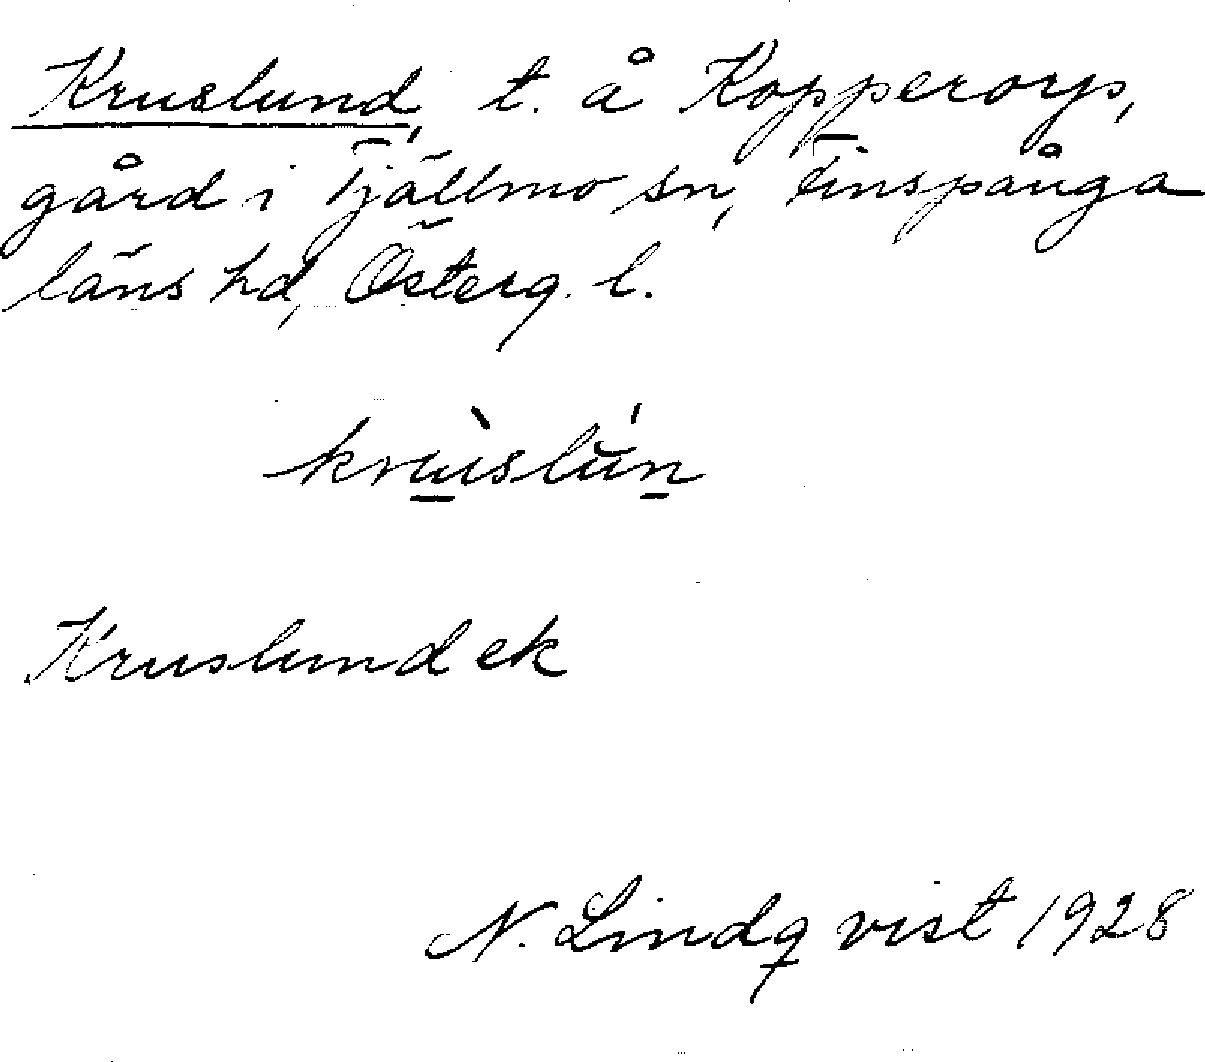 Kruslund, t. å Kopperorp,
gård i Tjällmo sn, Finspånga
läns hd, Österg. l.
krùslún
Kruslund ek
N. Lindqvist 1928